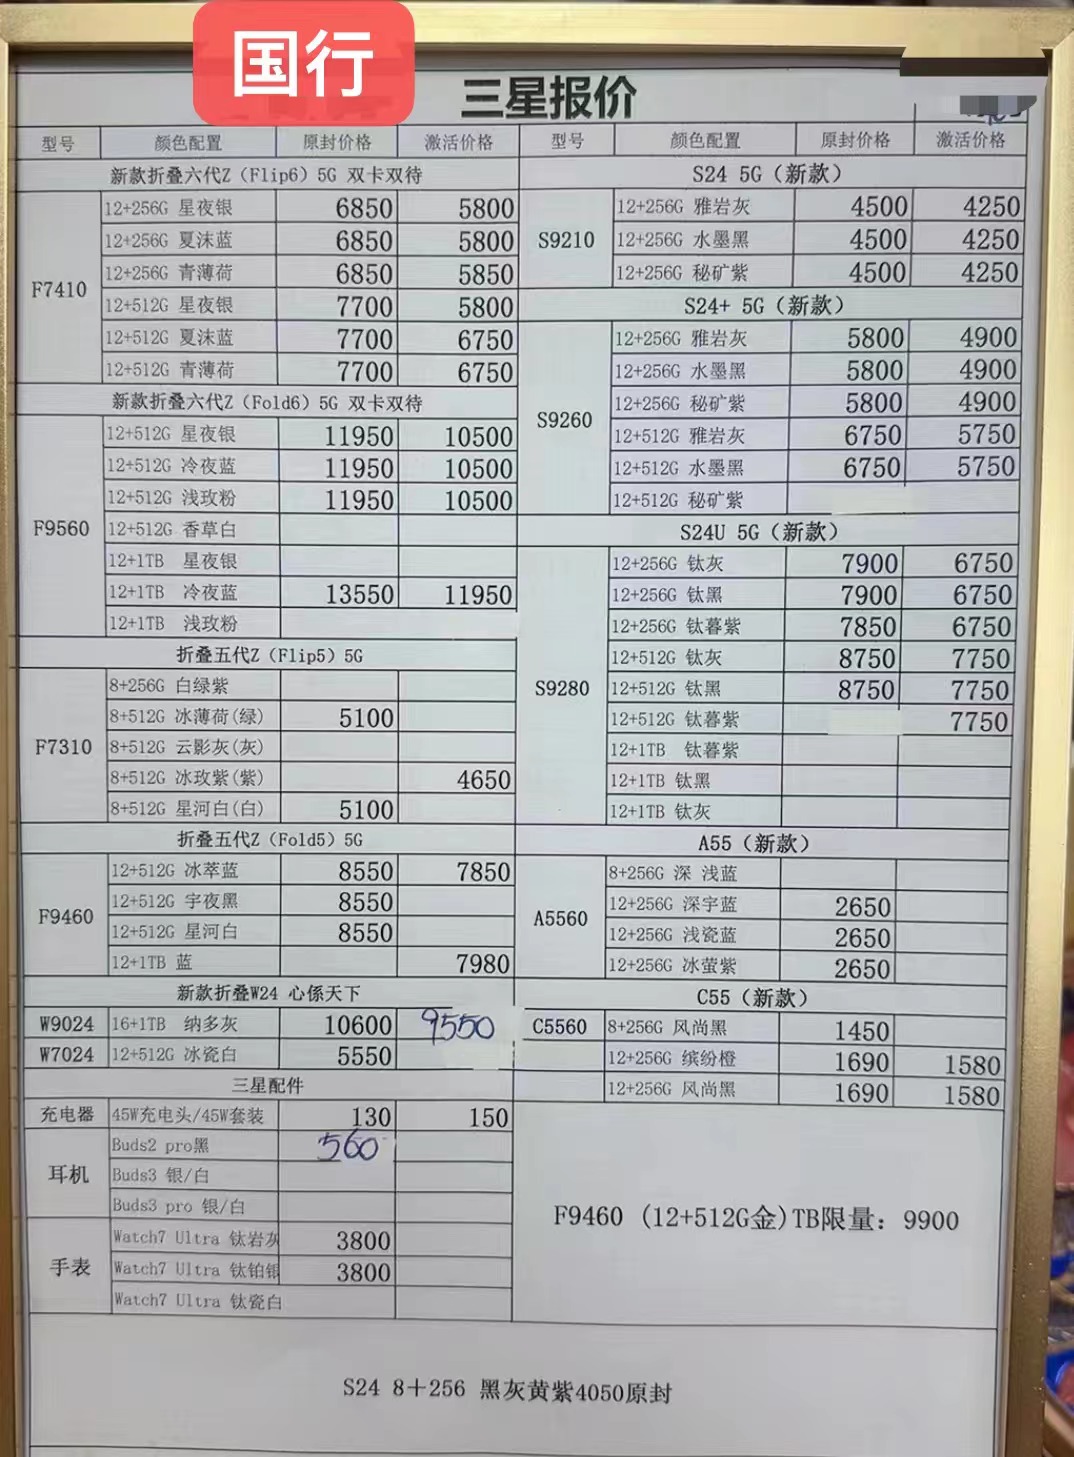 国行
三星报价
型号 颜色配置 原封价格 激活价格
新款折叠六代Z（Flip6）5G 双卡双待
F7410
12+256G 星夜银 6850 5800
12+256G 夏沫蓝 6850 5800
12+256G 青薄荷 6850 5850
12+512G 星夜银 7700 5800
12+512G 夏沫蓝 7700 6750
12+512G 青薄荷 7700 6750
新款折叠六代Z（Fold6）5G 双卡双待
F9560
12+512G 星夜银 11950 10500
12+512G 冷夜蓝 11950 10500
12+512G 浅玫粉 11950 10500
12+512G 香草白
12+1TB 星夜银
12+1TB 冷夜蓝 13550 11950
12+1TB 浅玫粉
折叠五代Z（Flip5）5G
F7310
8+256G 白绿紫
8+512G 冰薄荷(绿) 5100
8+512G 云影灰(灰)
8+512G 冰玫紫(紫) 4650
8+512G 星河白(白) 5100
折叠五代Z（Fold5）5G
F9460
12+512G 冰萃蓝 8550 7850
12+512G 宇夜黑 8550
12+512G 星河白 8550
12+1TB 蓝 7980
新款折叠W24 心係天下
W9024 16+1TB 纳多灰 10600 9550
W7024 12+512G 冰瓷白 5550
三星配件
充电器 45W充电头/45W套装 130 150
耳机
Buds2 pro黑 560
Buds3 银/白
Buds3 pro 银/白
手表
Watch7 Ultra 钛岩灰 3800
Watch7 Ultra 钛铂银 3800
Watch7 Ultra 钛瓷白
型号 颜色配置 原封价格 激活价格
S24 5G（新款）
S9210
12+256G 雅岩灰 4500 4250
12+256G 水墨黑 4500 4250
12+256G 秘矿紫 4500 4250
S24+ 5G（新款）
S9260
12+256G 雅岩灰 5800 4900
12+256G 水墨黑 5800 4900
12+256G 秘矿紫 5800 4900
12+512G 雅岩灰 6750 5750
12+512G 水墨黑 6750 5750
12+512G 秘矿紫
S24U 5G（新款）
S9280
12+256G 钛灰 7900 6750
12+256G 钛黑 7900 6750
12+256G 钛暮紫 7850 6750
12+512G 钛灰 8750 7750
12+512G 钛黑 8750 7750
12+512G 钛暮紫 7750
12+1TB 钛暮紫
12+1TB 钛黑
12+1TB 钛灰
A55（新款）
A5560
8+256G 深 浅蓝
12+256G 深宇蓝 2650
12+256G 浅瓷蓝 2650
12+256G 冰萤紫 2650
C55（新款）
C5560 8+256G 风尚黑 1450
12+256G 缤纷橙 1690 1580
12+256G 风尚黑 1690 1580
F9460 (12+512G金)TB限量：9900
S24 8＋256 黑灰黄紫4050原封